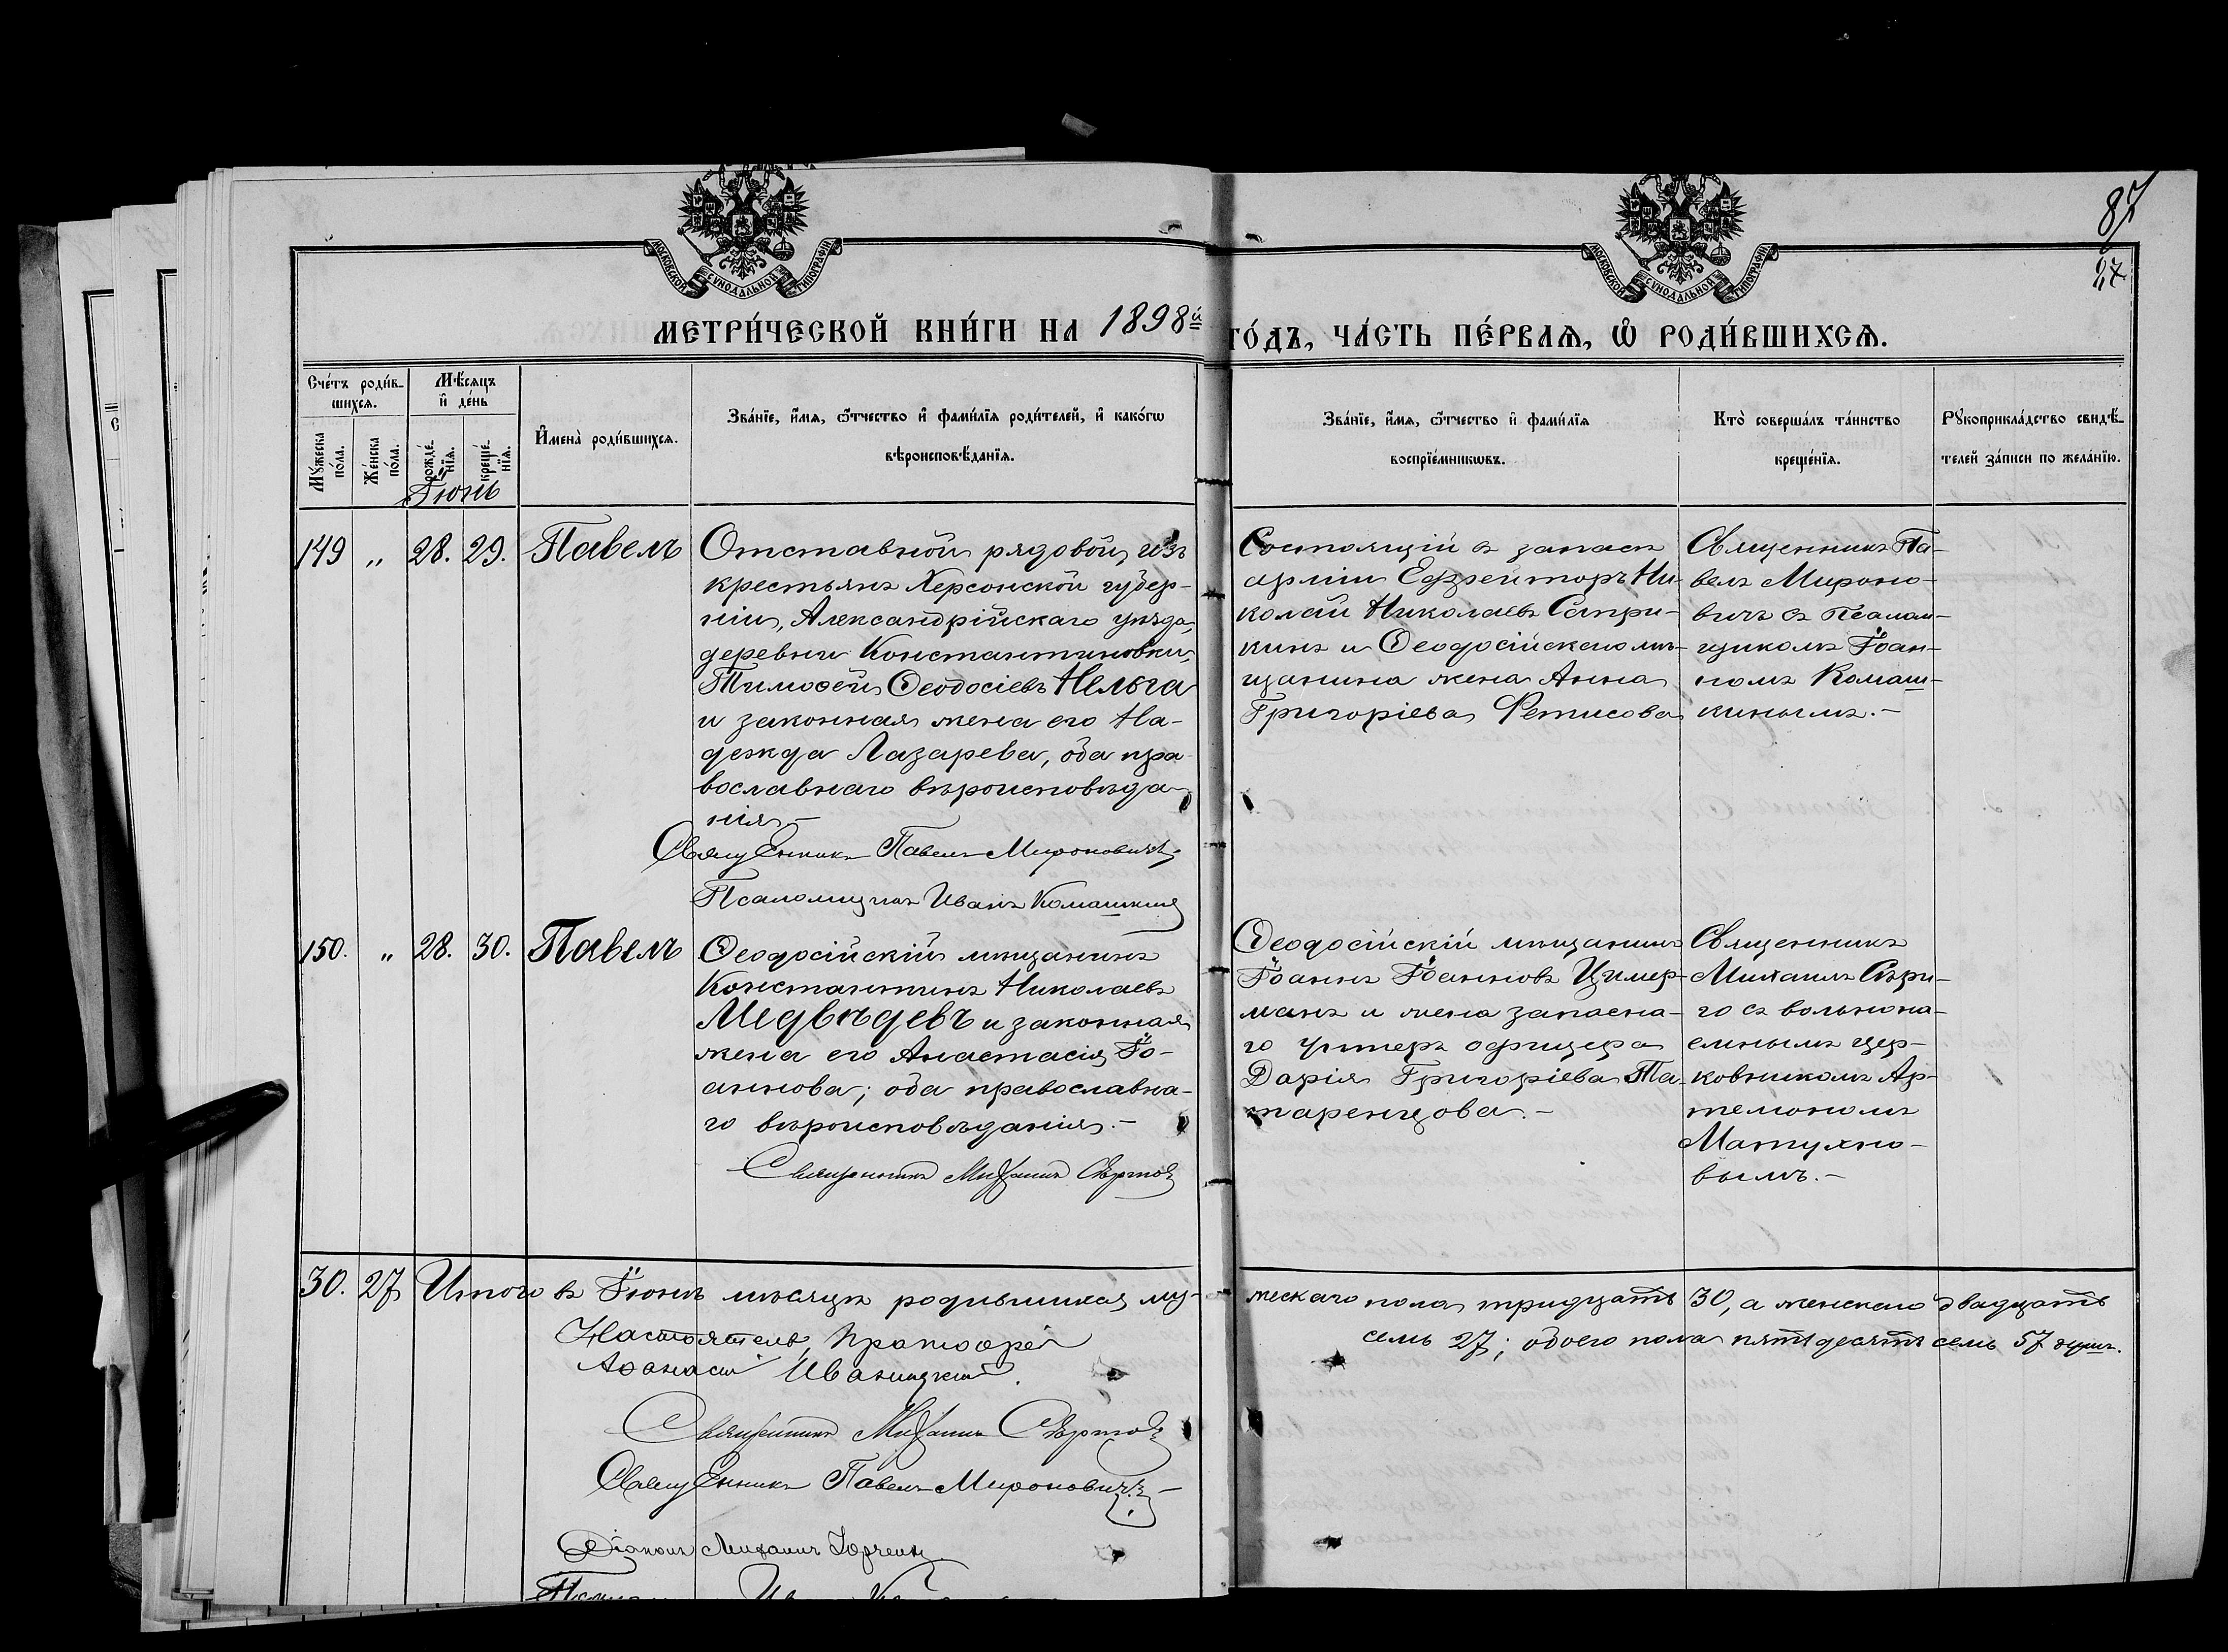 87
27
МОСКОВСКОЙ СѴНОДАЛЬНОЙ ТИПОГРАФІИ
МОСКОВСКОЙ СѴНОДАЛЬНОЙ ТИПОГРАФІИ
МЕТРИ́ЧЕСКОЙ КНИ́ГИ НА 1898й ГО́ДЪ, ЧА́СТЬ ПЕ́РВАѦ, Ѡ҆ РОДИ́ВШИХСѦ.
Сче́тъ роди́в-
шихсѧ.
Мꙋ́жеска по́ла.
Же́нска по́ла.
Мѣ́сѧцъ
и҆ де́нь
рожде́-
нїѧ.
креще́-
нїѧ.
Іюнь
И҆мена̀ роди́вшихсѧ.
Зва́нїе, и҆́мѧ, ѻ҆́тчество и҆ фами́лїѧ роди́телей, и҆ како́гѡ
вѣроисповѣ́данїѧ.
Зва́нїе, и҆́мѧ, ѻ҆́тчество и҆ фами́лїѧ
воспрїе́мникѡвъ.
Кто̀ соверша́лъ та́инство
креще́нїѧ.
Рꙋкоприкла́дство свидѣ́-
телей за́писи по жела́нїю.
149 „ 28. 29. Павелъ
Отставной рядовой, изъ
крестьянъ Херсонской губер-
ніи, Александрійскаго уѣзда,
деревни Константиновки,
Тимоѳей Ѳеодосіевъ Нельга
и законная жена его На-
дежда Лазарева, оба пра-
вославнаго вѣроисповѣда-
нія.-
Священникъ Павелъ Мироновичъ
Псаломщикъ Иванъ Комашкинъ
Состоящій въ запасѣ
арміи Ефрейторъ Ни-
колай Николаевъ Сапри-
кинъ и Ѳеодосійскаго мѣ-
щанина жена Анна
Григоріева Фетисова
Священникъ Па-
велъ Мироно-
вичъ съ Псалом-
щикомъ Іоан-
номъ Комаш-
кинымъ.-
150. „ 28. 30. Павелъ
Ѳеодосійскій мѣщанинъ
Константинъ Николаевъ
Медвѣдевъ и законная
жена его Анастасія Іо-
аннова; оба православна-
го вѣроисповѣданія.-
Священникъ Михаилъ
Ѳеодосійскій мѣщанинъ
Іоаннъ Іоанновъ Цимер-
манъ и жена запасна-
го Унтеръ офицера
Дарія Григоріева Та-
таренцова.-
Священникъ
Михаилъ
го съ вольнона-
емнымъ цер-
ковникомъ Ар-
темономъ
Матухно-
вымъ.-
30. 27 Итого въ Іюнѣ мѣсяцѣ родившихся му-
жескаго пола тридцать 30, а женскаго двадцать
семь 27; обоего пола пятьдесятъ семь 57 душъ.
Настоятель, Протоіерей
Аѳанасій Иваницкій.
Священникъ Михаилъ
Священникъ Павелъ Мироновичъ
Діаконъ Михаилъ Юрченко